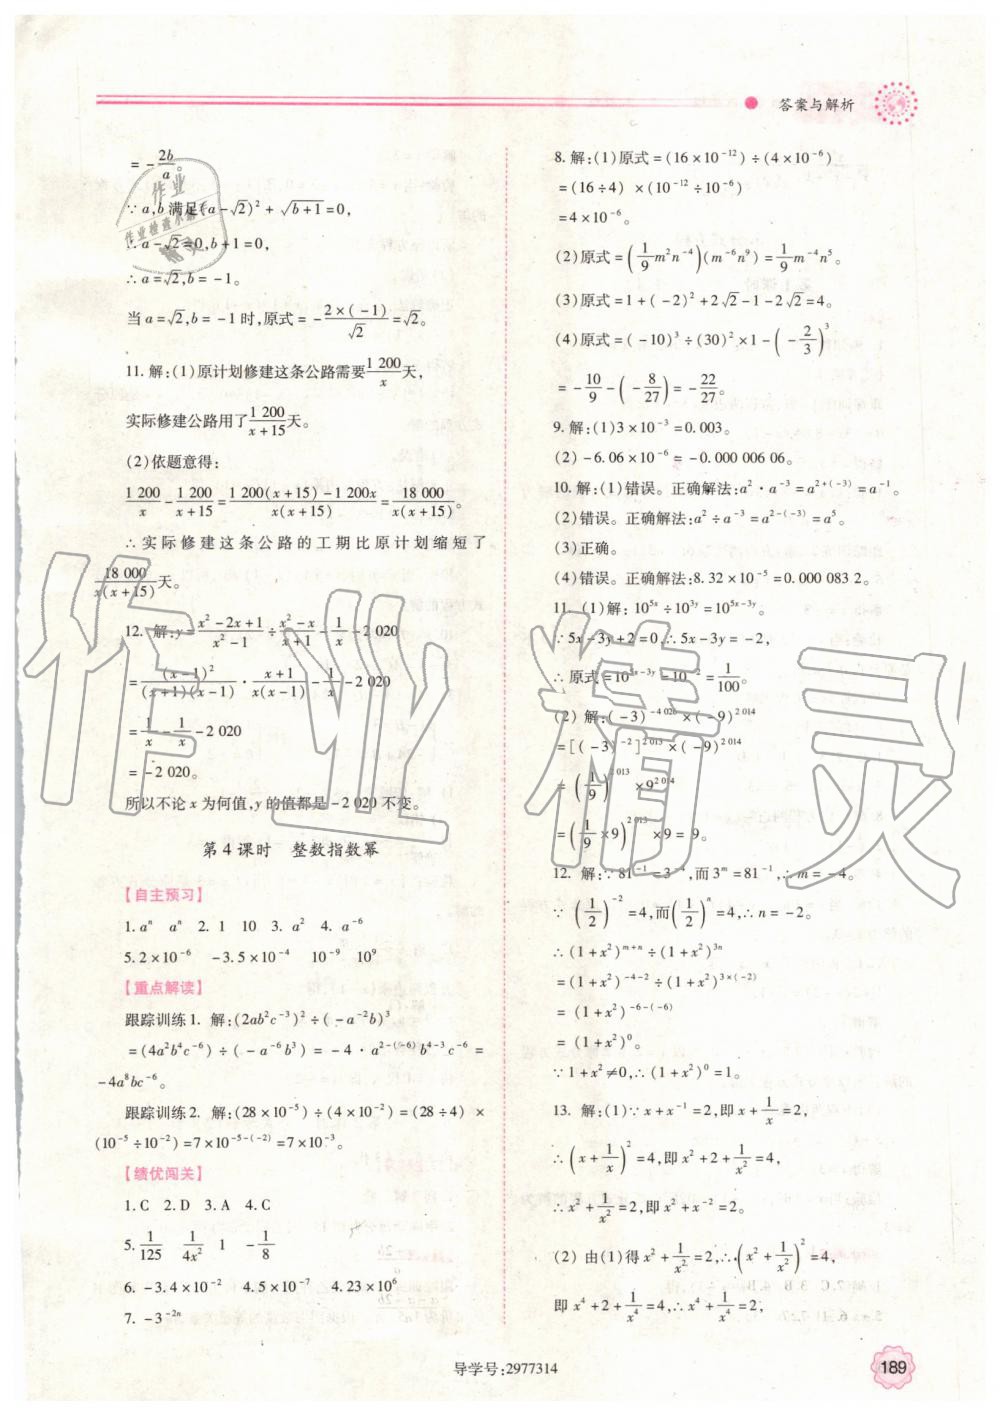 答案与解析
= -2b/a。
∵a,b满足(a-√2)²+√(b+1)=0,
∴a-√2=0,b+1=0,
∴a=√2,b=-1。
当a=√2,b=-1时,原式=-2×(-1)/√2=√2。
11.解:(1)原计划修建这条公路需要1 200/x天,
实际修建公路用了1 200/(x+15)天。
(2)依题意得:
1 200/x-1 200/(x+15)=[1 200(x+15)-1 200x]/[x(x+15)]=18 000/[x(x+15)]。
∴实际修建这条公路的工期比原计划缩短了
18 000/[x(x+15)]天。
12. 解:y=(x²-2x+1)/(x²-1)÷(x²-x)/(x+1)-1/x-2 020
=(x-1)²/[(x+1)(x-1)]·(x+1)/[x(x-1)]-1/x-2 020
=1/x-1/x-2 020
=-2 020。
所以不论x为何值,y的值都是-2 020不变。
第4课时 整数指数幂
【自主预习】
1.aⁿ aⁿ 2. 1 10 3. a² 4. a⁻⁶
5.2×10⁻⁶ -3.5×10⁻⁴ 10⁻⁹ 10⁹
【重点解读】
跟踪训练1. 解:(2ab²c⁻³)²÷(-a⁻²b)³
=(4a²b⁴c⁻⁶)÷(-a⁻⁶b³)=-4·a²⁻⁽⁻⁶⁾b⁴⁻³c⁻⁶=
-4a⁸bc⁻⁶。
跟踪训练2. 解:(28×10⁻⁵)÷(4×10⁻²)=(28÷4)×
(10⁻⁵÷10⁻²)=7×10⁻⁵⁻⁽⁻²⁾=7×10⁻³。
【绩优闯关】
1.C 2.D 3.A 4.C
5. 1/125 1/(4x²) 1 -1/8
6. -3.4×10⁻² 4.5×10⁻⁷ 4.23×10⁶
7. -3⁻²ⁿ
8.解:(1)原式=(16×10⁻¹²)÷(4×10⁻⁶)
=(16÷4)×(10⁻¹²÷10⁻⁶)
=4×10⁻⁶。
(2)原式=(1/9 m²n⁻⁴)(m⁻⁶n⁹)=1/9 m⁻⁴n⁵。
(3)原式=1+(-2)²+2√2-1-2√2=4。
(4)原式=(-10)³÷(30)²×1-(-2/3)³
=-10/9-(-8/27)=-22/27。
9.解:(1)3×10⁻³=0.003。
(2)-6.06×10⁻⁶=-0.000 006 06。
10.解:(1)错误。正确解法:a²·a⁻³=a²⁺⁽⁻³⁾=a⁻¹。
(2)错误。正确解法:a²÷a⁻³=a²⁻⁽⁻³⁾=a⁵。
(3)正确。
(4)错误。正确解法:8.32×10⁻⁵=0.000 083 2。
11. (1)解:10^(5x)÷10^(3y)=10^(5x-3y)。
∵5x-3y+2=0,∴5x-3y=-2,
∴原式=10^(5x-3y)=10⁻²=1/100。
(2) 解:(-3)^(-4 026)×(-9)^(2 014)
=[(-3)⁻²]^(2 013)×(-9)^(2 014)
=(1/9)^(2 013)×9^(2 014)
=(1/9×9)^(2 013)×9=9。
12. 解:∵81⁻¹=3⁻⁴,而3ᵐ=81⁻¹,∴m=-4。
∵(1/2)⁻²=4,而(1/2)ⁿ=4,∴n=-2。
∴(1+x²)^(m+n)÷(1+x²)^(3n)
=(1+x²)^(-4-2)÷(1+x²)^(3×(-2))
=(1+x²)^(-6-(-6))
=(1+x²)⁰。
∵1+x²≠0,∴(1+x²)⁰=1。
13. 解:(1)∵x+x⁻¹=2,即x+1/x=2,
∴(x+1/x)²=4,即x²+2+1/x²=4,
∴x²+1/x²=2,即x²+x⁻²=2。
(2) 由(1)得x²+1/x²=2,∴(x²+1/x²)²=4,
即x⁴+2+1/x⁴=4,∴x⁴+1/x⁴=2,
作业精灵
导学号:2977314
189